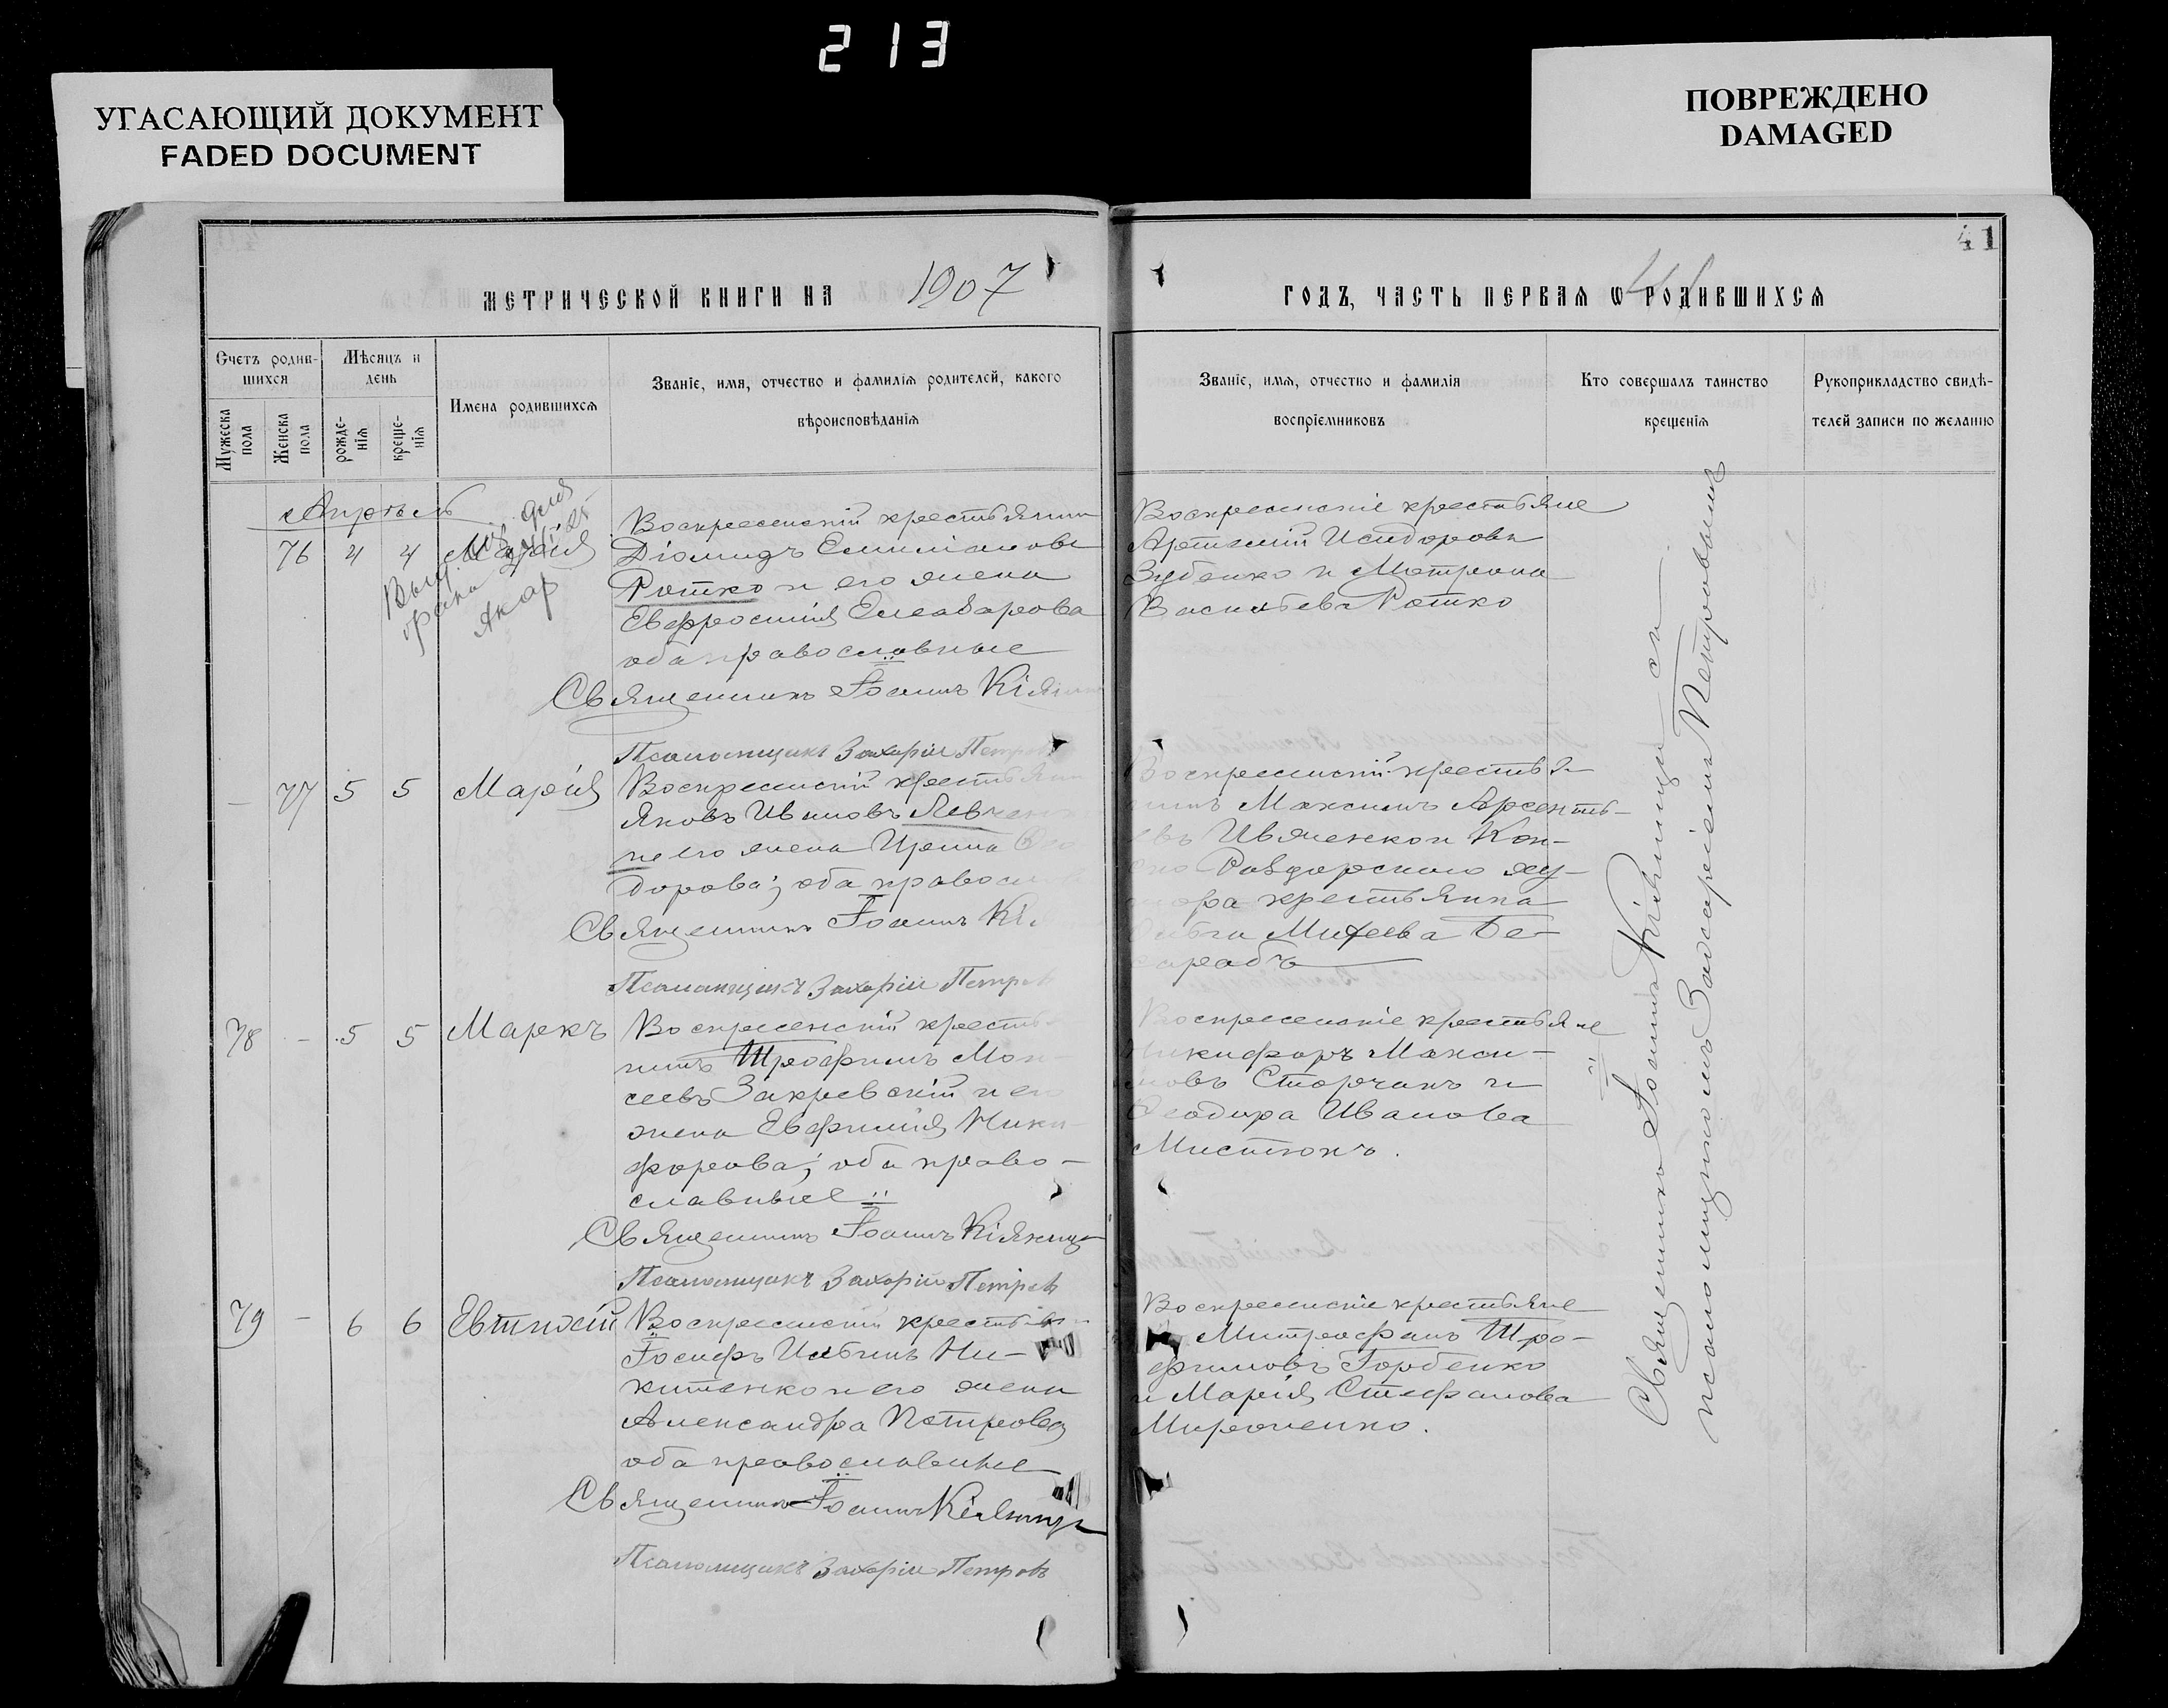 213
УГАСАЮЩИЙ ДОКУМЕНТ
FADED DOCUMENT
ПОВРЕЖДЕНО
DAMAGED
41
МЕТРИЧЕСКОЙ КНИГИ НА 1907
ГОДЪ, ЧАСТЬ ПЕРВАЯ Ѡ РОДИВШИХСЯ
Счетъ родив-
шихся
Мѣсяцъ и
день
Мужеска
пола
Женска
пола
рожде-
нія
креще-
нія
Имена родившихся
Званіе, имя, отчество и фамилія родителей, какого
вѣроисповѣданія
Званіе, имя, отчество и фамилія
воспріемниковъ
Кто совершалъ таинство
крещенія
Рукоприкладство свидѣ-
телей записи по желанію
Апрѣль
76 4 4 Марія
Воскресенскій крестьянин
Діомидъ Емиліанов
Ротко и его жена
Евфросинія Елеазарова
оба православные
Священникъ Іоаннъ
Псаломщикъ Захарій Петров
Воскресенскіе крестьяне
Артемій Исидоровъ
Зубенко и Матрона
Васильева Ротко
77 5 5 Марія
Воскресенскій крестьян
Яковъ Ивановъ Левчен
и его жена Ирина Ѳео
дорова; оба правосл
Священникъ Іоаннъ
Псаломщикъ Захарій Петров
Воскресенскій крестья-
нинъ Максимъ Арсенть-
евъ Иващенко и Кон-
ху-
тора крестьянка
Ольга Михеева Бе-
сарабъ
78 - 5 5 Маркъ
Воскресенскій крестья
нинъ Трофимъ Мои-
сеевъ Закревскій и его
жена Евфимія Ники
форова; оба право-
славные
Священникъ Іоаннъ
Псаломщикъ Захарій Петров
Воскресенскіе крестьяне
Никифоръ Макси-
мовъ Сторчакъ и
Ѳеодора Иванова
Мистюкъ.
79 - 6 6 Евтихій
Воскресенскій крестьян
Іосифъ Ильинъ Ни-
китенко и его жена
Александра Петрова
оба православные
Священникъ Іоаннъ
Псаломщикъ Захарій Петровъ
Воскресенскіе крестьяне
Митрофанъ Тро-
фимовъ Горбенко
и Марія Стефанова
Мироненко.
Священникъ Іоаннъ съ
псаломщикомъ Захаріемъ Петровымъ